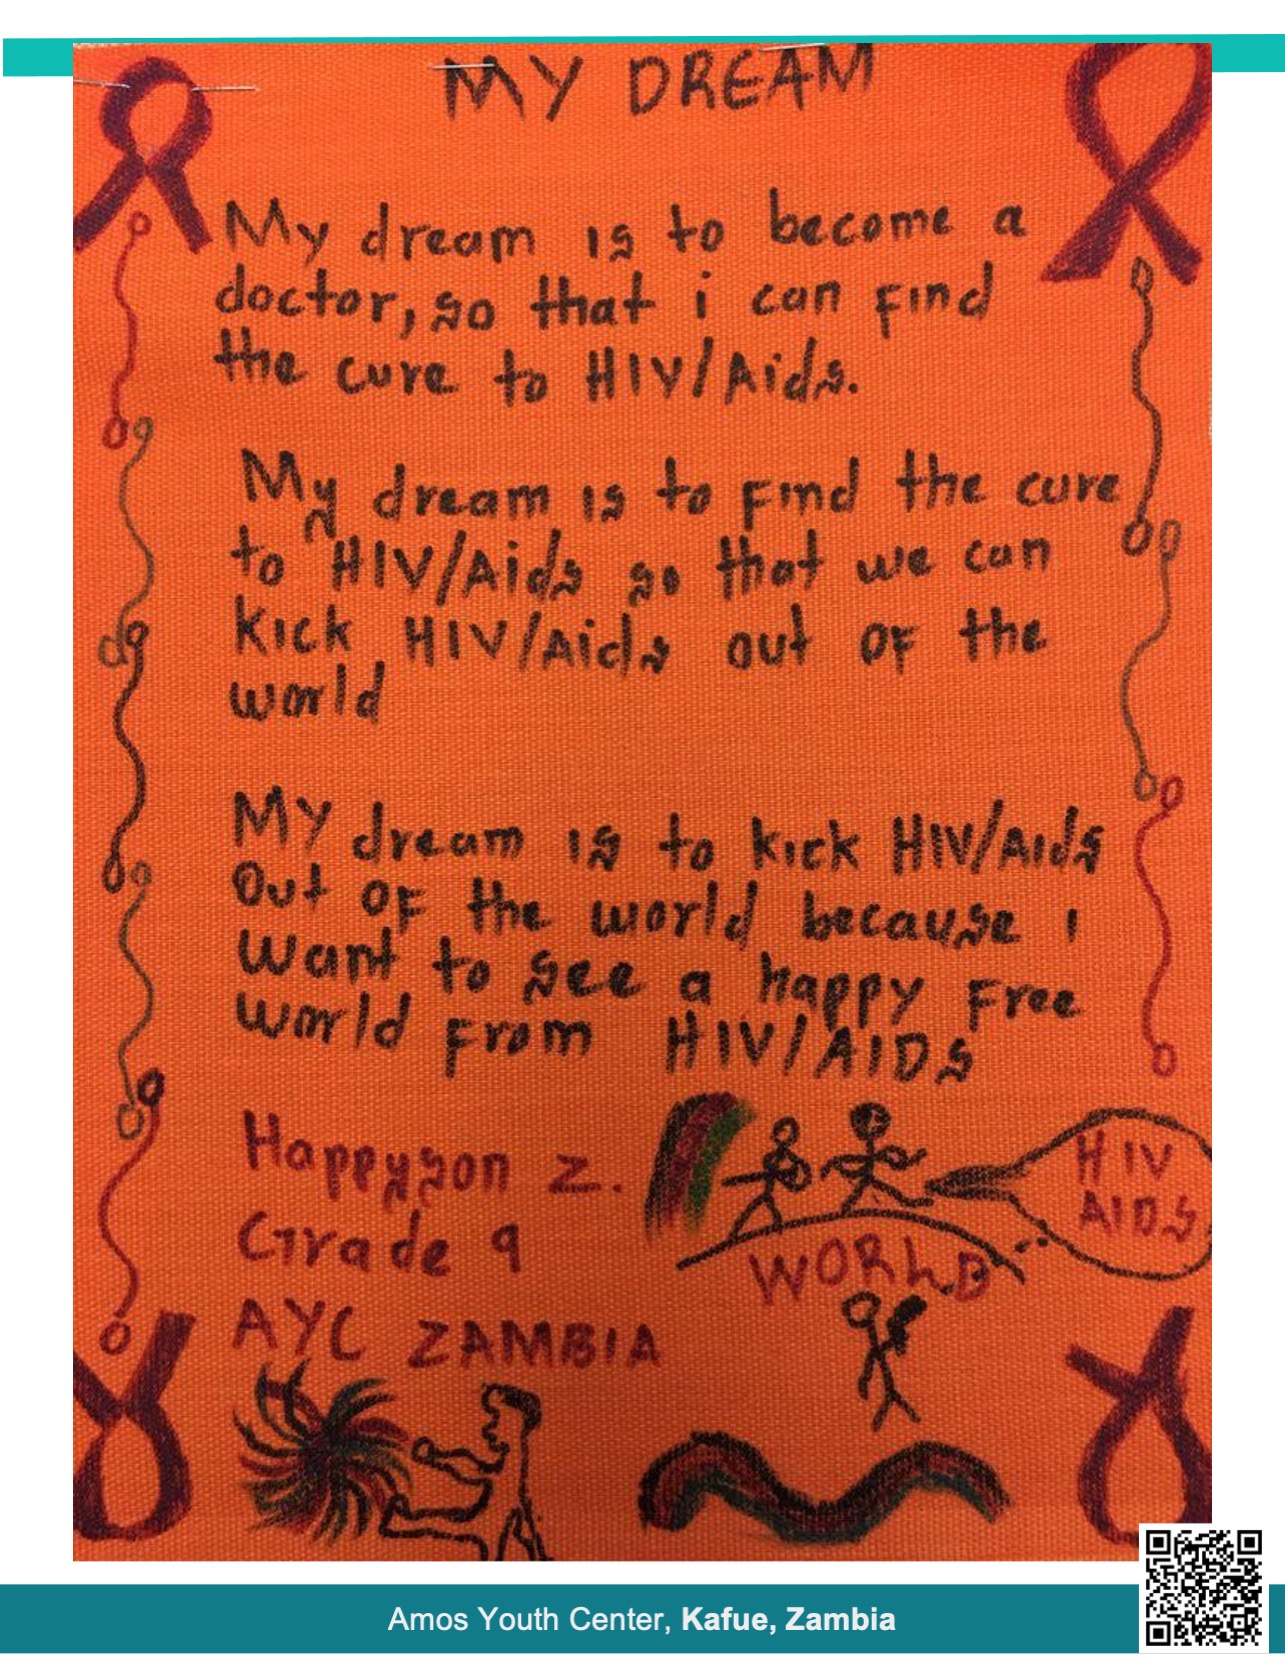 MY DREAM
My dream is to become a
doctor, so that i can find
the cure to HIV/Aids.
My dream is to find the cure
to HIV/Aids so that we can
kick HIV/Aids out of the
world
MY dream is to kick HIV/AIds
Out of the world because i
want to see a happy Free
world from HIV/AIDS
Happyson Z.
Grade 9
AYC ZAMBIA
HIV
AIDS
WORLD
Amos Youth Center, Kafue, Zambia